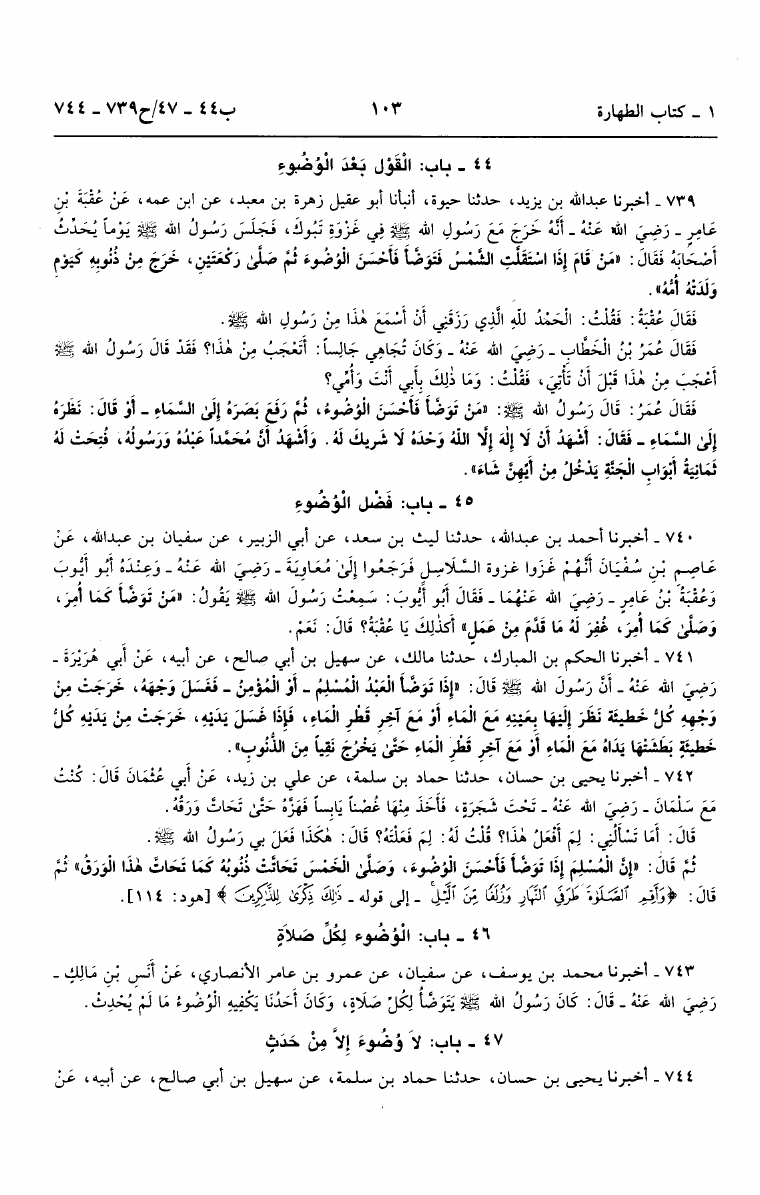 ١ ـ كتاب الطهارة ١٠٣ ب٤٤ ـ ٤٧/ح٧٣٩ ـ ٧٤٤
٤٤ ـ باب: الْقَوْل بَعْدَ الْوُضُوءِ
٧٣٩ ـ أخبرنا عبدالله بن يزيد، حدثنا حيوة، أنبأنا أبو عقيل زهرة بن معبد، عن ابن عمه، عَنْ عُقْبَةَ بْنِ
عَامِرٍ ـ رَضِيَ الله عَنْهُ ـ أَنَّهُ خَرَجَ مَعَ رَسُولِ الله ﷺ فِي غَزْوَةِ تَبُوكَ، فَجَلَسَ رَسُولُ الله ﷺ يَوْماً يُحَدِّثُ
أَصْحَابَهُ فَقَالَ: «مَنْ قَامَ إِذَا اسْتَقَلَّتِ الشَّمْسُ فَتَوَضَّأَ فَأَحْسَنَ الْوُضُوءَ ثُمَّ صَلَّىٰ رَكْعَتَيْنِ، خَرَجَ مِنْ ذُنُوبِهِ كَيَوْمِ
وَلَدَتْهُ أُمُّهُ».
فَقَالَ عُقْبَةُ: فَقُلْتُ: الْحَمْدُ للّهِ الَّذِي رَزَقَنِي أَنْ أَسْمَعَ هٰذَا مِنْ رَسُولِ الله ﷺ.
فَقَالَ عُمَرُ بْنُ الْخَطَّابِ ـ رَضِيَ الله عَنْهُ ـ وَكَانَ تُجَاهِي جَالِساً: أَتَعْجَبُ مِنْ هٰذَا؟ فَقَدْ قَالَ رَسُولُ الله ﷺ
أَعْجَبَ مِنْ هٰذَا قَبْلَ أَنْ تَأْتِيَ، فَقُلْتُ: وَمَا ذٰلِكَ بِأَبِي أَنْتَ وَأُمِّي؟
فَقَالَ عُمَرُ: قَالَ رَسُولُ الله ﷺ: «مَنْ تَوَضَّأَ فَأَحْسَنَ الْوُضُوءَ، ثُمَّ رَفَعَ بَصَرَهُ إِلىٰ السَّمَاءِ ـ أَوْ قَالَ: نَظَرَهُ
إِلىٰ السَّمَاءِ ـ فَقَالَ: أَشْهَدُ أَنْ لَا إِلٰهَ إِلَّا اللّهُ وَحْدَهُ لَا شَرِيكَ لَهُ. وَأَشْهَدُ أَنَّ مُحَمَّداً عَبْدُهُ وَرَسُولُهُ، فُتِحَتْ لَهُ
ثَمَانِيَةُ أَبْوَابِ الْجَنَّةِ يَدْخُلُ مِنْ أَيِّهِنَّ شَاءَ».
٤٥ ـ باب: فَضْل الْوُضُوءِ
٧٤٠ ـ أخبرنا أحمد بن عبدالله، حدثنا ليث بن سعد، عن أبي الزبير، عن سفيان بن عبدالله، عَنْ
عَاصِمِ بْنِ سُفْيَانَ أَنَّهُمْ غَزَوا غزوة السَّلَاسِلِ فَرَجَعُوا إِلىٰ مُعَاوِيَةَ ـ رَضِيَ الله عَنْهُ ـ وَعِنْدَهُ أَبُو أَيُّوبَ
وَعُقْبَةُ بْنُ عَامِرٍ ـ رَضِيَ الله عَنْهُمَا ـ فَقَالَ أَبُو أَيُّوبَ: سَمِعْتُ رَسُولَ الله ﷺ يَقُولُ: «مَنْ تَوَضَّأَ كَمَا أُمِرَ،
وَصَلَّىٰ كَمَا أُمِرَ، غُفِرَ لَهُ مَا قَدَّمَ مِنْ عَمَلٍ» أَكَذٰلِكَ يَا عُقْبَةُ؟ قَالَ: نَعَمْ.
٧٤١ ـ أخبرنا الحكم بن المبارك، حدثنا مالك، عن سهيل بن أبي صالح، عن أبيه، عَنْ أَبِي هُرَيْرَةَ ـ
رَضِيَ الله عَنْهُ ـ أَنَّ رَسُولَ الله ﷺ قَالَ: «إِذَا تَوَضَّأَ الْعَبْدُ الْمُسْلِمُ ـ أَوْ الْمُؤْمِنُ ـ فَغَسَلَ وَجْهَهُ، خَرَجَتْ مِنْ
وَجْهِهِ كُلُّ خطيئة نَظَرَ إِلَيْهَا بِعَيْنِهِ مَعَ الْمَاءِ أَوْ مَعَ آخِرِ قَطْرِ الْمَاءِ، فَإِذَا غَسَلَ يَدَيْهِ، خَرَجَتْ مِنْ يَدَيْهِ كُلُّ
خَطيئَةٍ بَطَشَتْهَا يَدَاهُ مَعَ الْمَاءِ أَوْ مَعَ آخِرِ قَطْرِ الْمَاءِ حَتَّىٰ يَخْرُجَ نَقِياً مِنَ الذُّنُوبِ».
٧٤٢ ـ أخبرنا يحيى بن حسان، حدثنا حماد بن سلمة، عن علي بن زيد، عَنْ أَبِي عُثْمَانَ قَالَ: كُنْتُ
مَعَ سَلْمَانَ ـ رَضِيَ الله عَنْهُ ـ تَحْتَ شَجَرَةٍ، فَأَخَذَ مِنْهَا غُصْناً يَابِساً فَهَزَّهُ حَتَّىٰ تَحَاتَّ وَرَقُهُ.
قَالَ: أَمَا تَسْأَلُنِي: لِمَ أَفْعَلُ هٰذَا؟ قُلْتُ لَهُ: لِمَ فَعَلْتَهُ؟ قَالَ: هٰكَذَا فَعَلَ بِي رَسُولُ الله ﷺ.
ثُمَّ قَالَ: «إِنَّ الْمُسْلِمَ إِذَا تَوَضَّأَ فَأَحْسَنَ الْوُضُوءَ، وَصَلَّىٰ الْخَمْسَ تَحَاتَّتْ ذُنُوبُهُ كَمَا تَحَاتَّ هٰذَا الْوَرَقُ» ثُمَّ
قَالَ: ﴿وَأَقِمِ ٱلصَّلَوٰةَ طَرَفَيِ ٱلنَّهَارِ وَزُلَفًا مِّنَ ٱلَّيْلِ﴾ ـ إلى قوله ـ ذَٰلِكَ ذِكْرَىٰ لِلذَّٰكِرِينَ ﴾ [هود: ١١٤].
٤٦ ـ باب: الْوُضُوءِ لِكُلِّ صَلاَةٍ
٧٤٣ ـ أخبرنا محمد بن يوسف، عن سفيان، عن عمرو بن عامر الأنصاري، عَنْ أَنَسِ بْنِ مَالِكٍ ـ
رَضِيَ الله عَنْهُ ـ قَالَ: كَانَ رَسُولُ الله ﷺ يَتَوَضَّأُ لِكُلِّ صَلَاةٍ، وَكَانَ أَحَدُنَا يَكْفِيهِ الْوُضُوءُ مَا لَمْ يُحْدِثْ.
٤٧ ـ باب: لاَ وُضُوءَ إِلاَّ مِنْ حَدَثٍ
٧٤٤ ـ أخبرنا يحيى بن حسان، حدثنا حماد بن سلمة، عن سهيل بن أبي صالح، عن أبيه، عَنْ